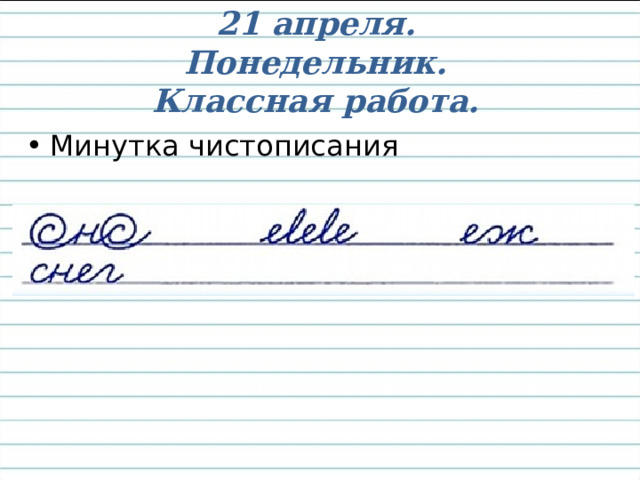 21 апреля.
Понедельник.
Классная работа.
• Минутка чистописания
СнС elele еж
снег